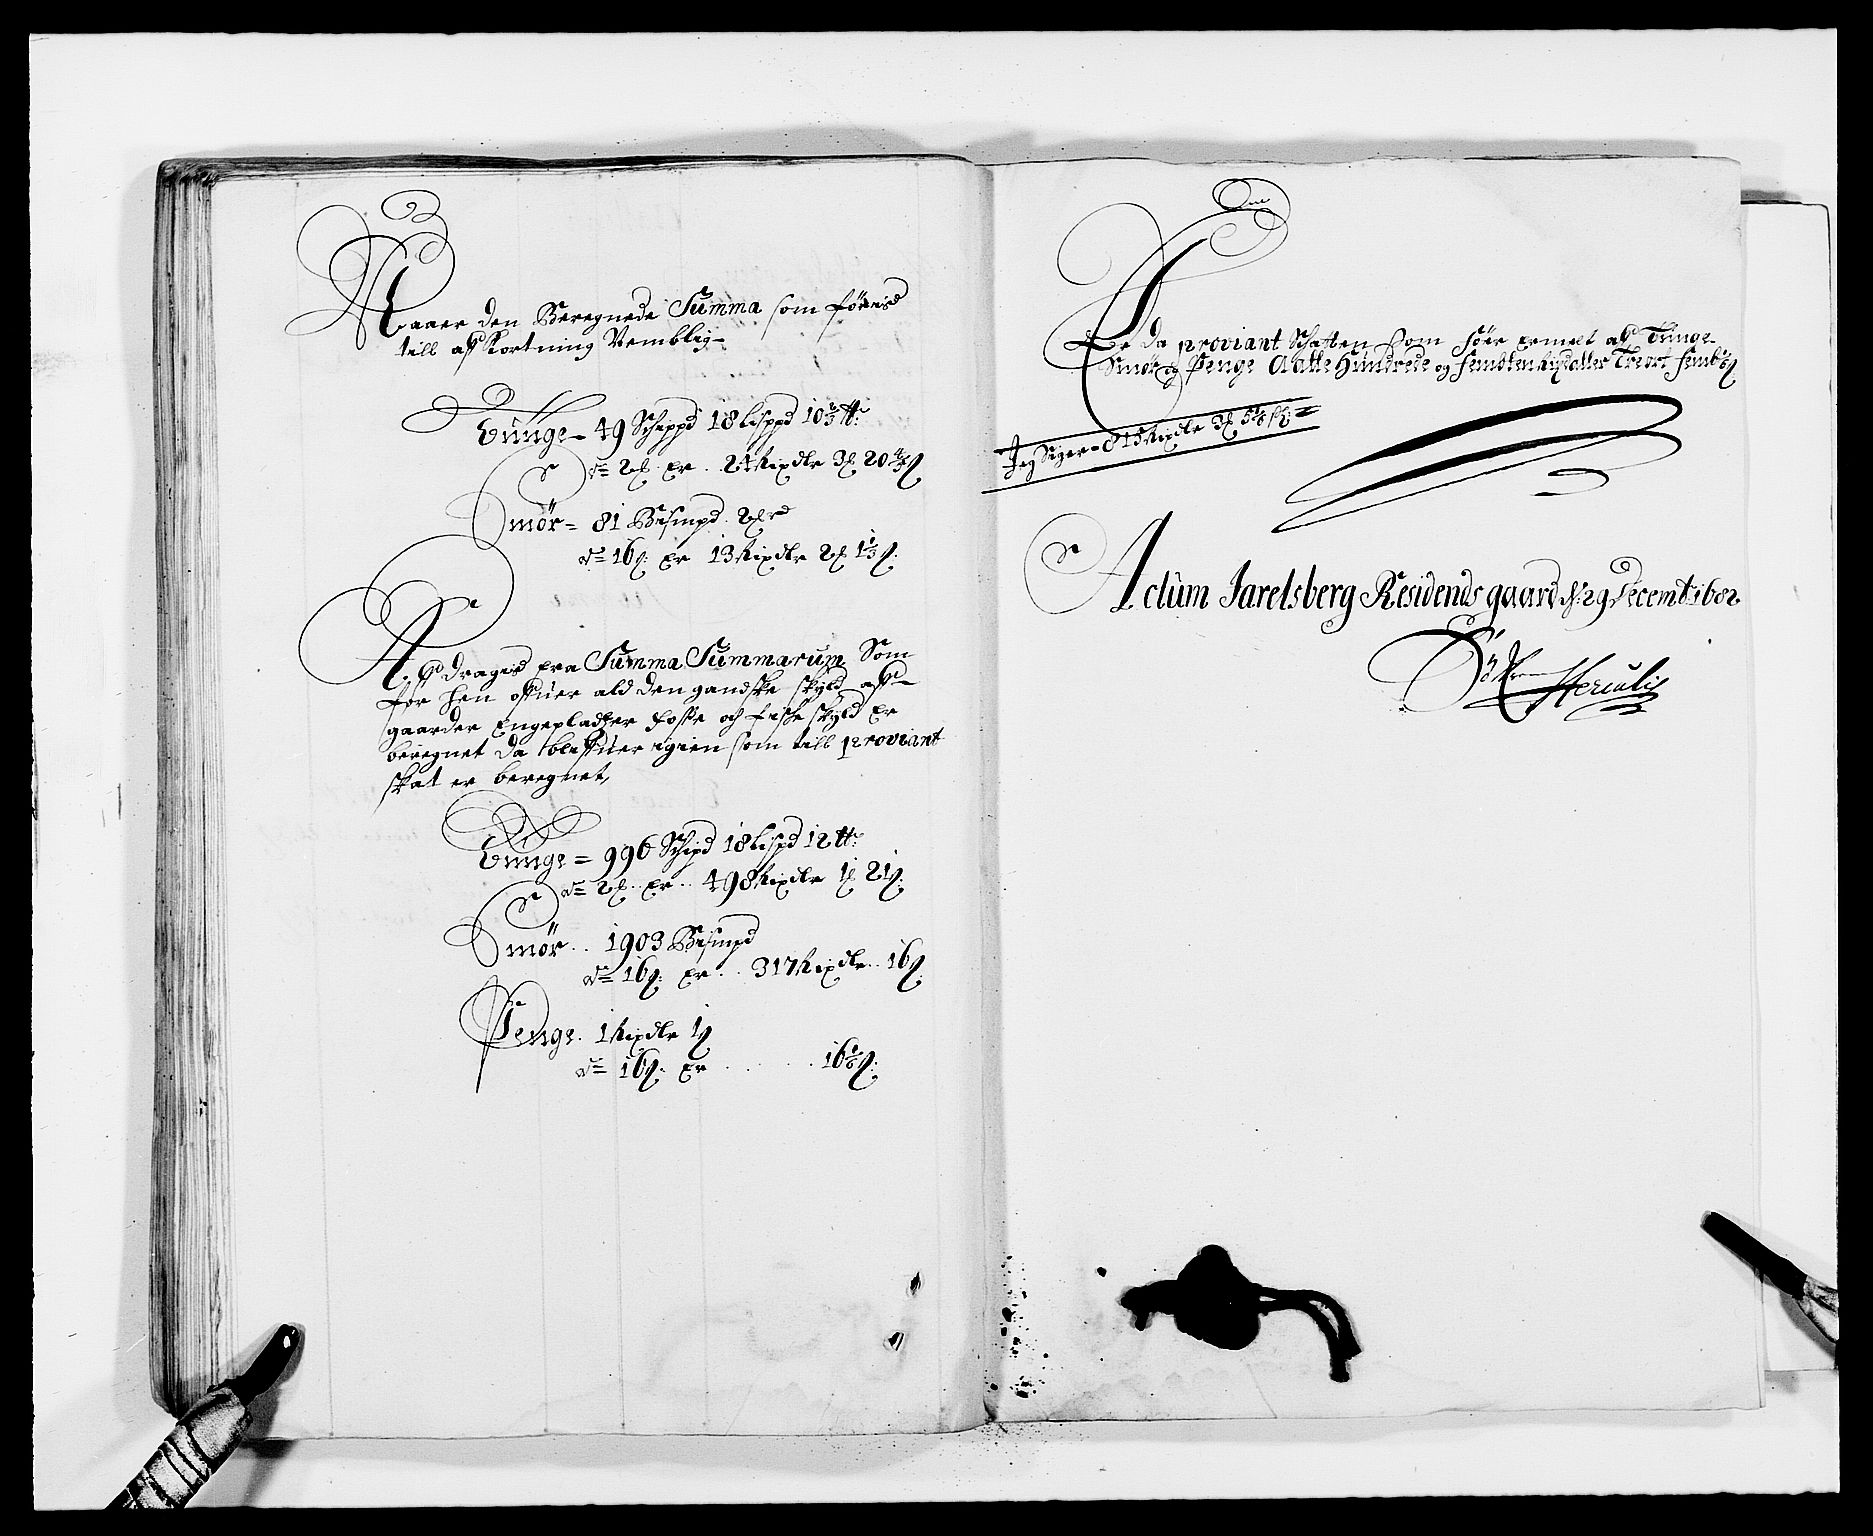 Naaer den Beregnede Summa som føris
till aff Kortning Nemblig
Tunge – 49 Schippd 18 Lisppd 10 2/3 tt:
er .. 24 Rixdlr 20
Smør – 81 Bismpd
a 16 β: er 13 Rixdlr 1 1/3 β:
Aff dragis fra Summa Summarum Som
for hen offuer ald den gandske skyld aff
gaarder Engepladtzer Fosse och fiske skyld er
beregnet da bliffuer igien som till proviant
skat er beregnet,
Tunge = 996 Schipd 18 Lispd 12 tt:
er .. 498 Rixdlr 21 β:
Smør .. 1903 Bismpd
a 16 β: er .. 317 Rixdlr .. 16 β:
Penge . 1 Rixdlr
a 16 β: er . . . . . 16 β:
Er da proviant Schatten Som føer ermelt aff Tunge
Smør og Penge Aatte Hundrede og fembten Rixdaller Tre ort
Jeg Siger = 815 Rixdlr
Actum Jarelsberg Residends gaard d: 29 Decemb: 1682
Sør Herculis